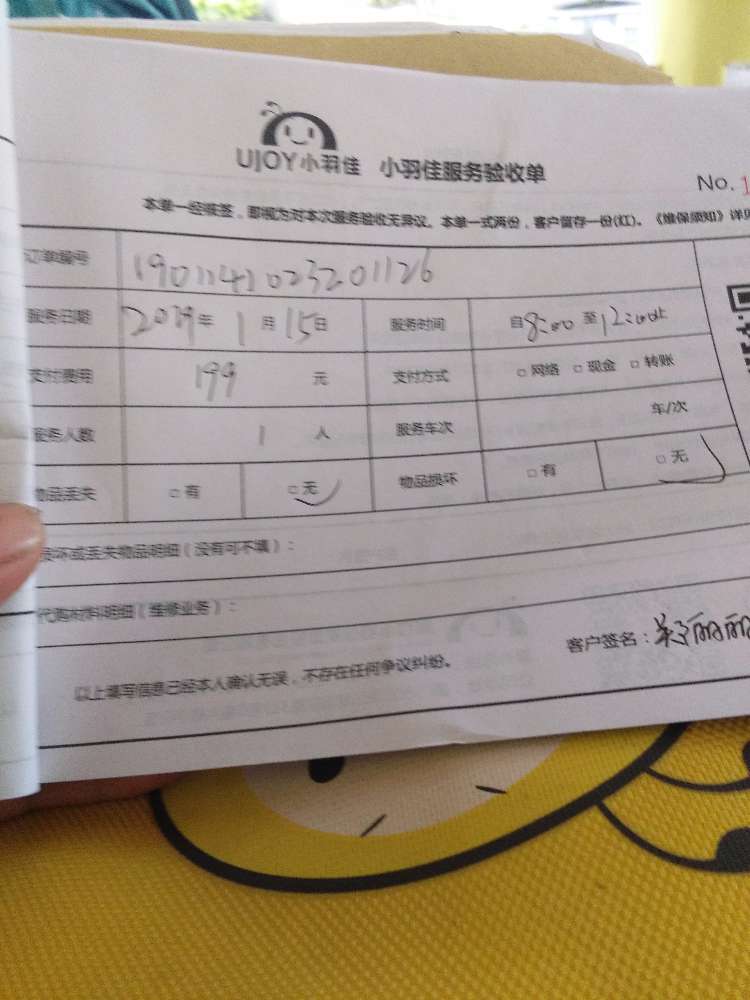 UJOY小羽佳 小羽佳服务验收单
No. 1
本单一经核签,即视为对本次服务验收无异议。本单一式两份,客户留存一份(红)。《维保须知》详见
订单编号 1901141023201126
服务日期 2019年 1月15日 服务时间 自8:00 至12:00止
支付费用 199 元 支付方式 □网络 □现金 □转账
服务人数 1 人 服务车次 车/次
物品丢失 □有 □无 物品损坏 □有 □无
损坏或丢失物品明细(没有可不填):
代购材料明细(维修业务):
以上填写信息已经本人确认无误,不存在任何争议纠纷。
客户签名:丽丽